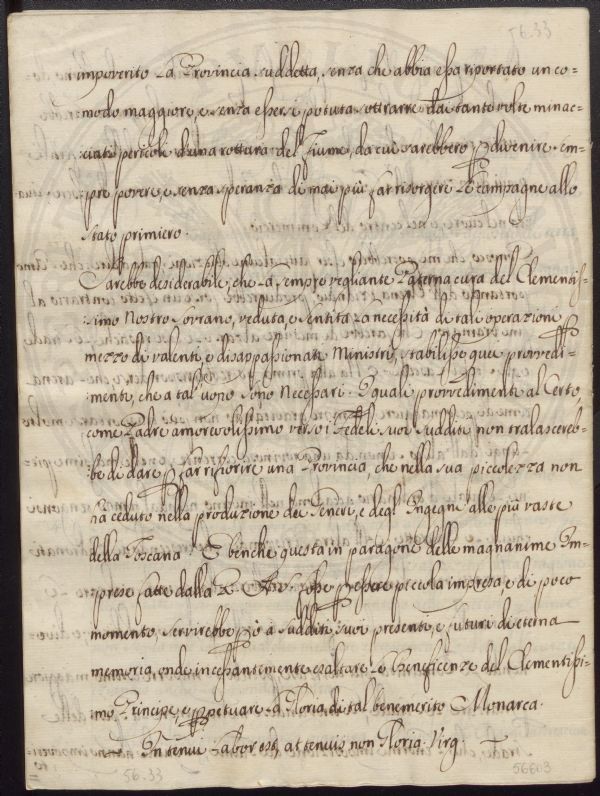 56.33
impoverito La Provincia suddetta, senza che abbia essa riportato un co-
modo maggiore, e senza essersi potuta sottrarre dai tante volte minac-
ciati pericoli d'una rottura del Fiume, da cui sarebbero p divenire sem-
pre povere, e senza speranza di mai più far risorgere Le Campagne allo
stato primiero.
Sarebbe desiderabile, che La sempre vegliante Paterna cura del Clementis-
simo Nostro Sovrano, veduta, e sentita La necessità di tali operazioni p
mezzo di valenti, e disappassionati Ministri, stabilisse quei provvedi-
menti, che a tal uopo sono Necessari. I quali provvedimenti al Certo,
come Padre amorevolissimo verso i Fedeli suoi sudditi non tralascereb-
be di dare p far rifiorire una Provincia, che nella sua piccolezza non
ha ceduto nella produzione dei Generi, e degl' Ingegni alle più vaste
della Toscana. E benche questa in paragone delle magnanime Im-
prese fatte dalla p essere piccola impresa, e di poco
momento, servirebbe pò a sudditi suoi presenti, e futuri di eterna
memoria, onde incessantemente esaltare Le beneficenze del Clementissi-
mo Principe, e ppetuare La Gloria di tal benemerito Monarca.
In tenui Labor est, at tenuis non Gloria. Virg.
56.33
56603